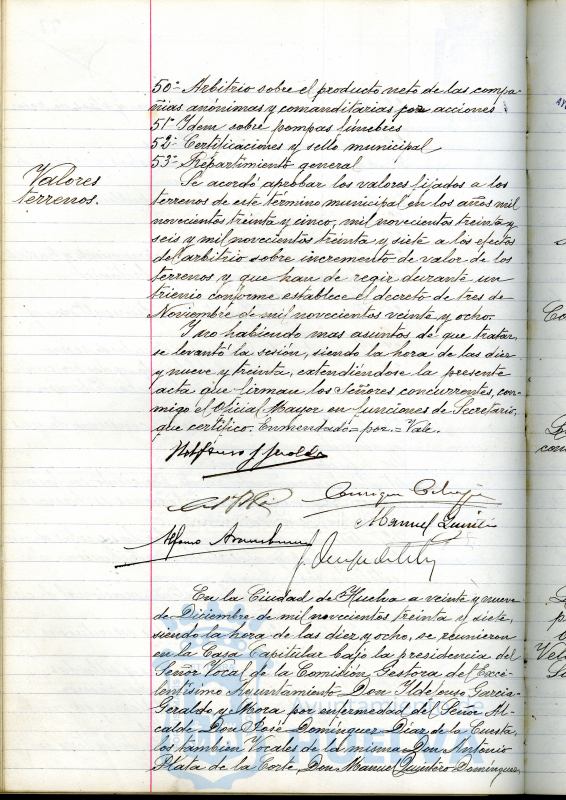 50º Arbitrio sobre el producto neto de las compa-
ñias anónimas y comanditarias por acciones
51º Idem sobre pompas fúnebres
52º Certificaciones y sello municipal
53º Repartimiento general
Valores
terrenos.
Se acordó aprobar los valores fijados a los
terrenos de este término municipal en los años mil
novecientos treinta y cinco, mil novecientos treinta y
seis y mil novecientos treinta y siete a los efectos
del arbitrio sobre incremento de valor de los
terrenos y que han de regir durante un
trienio conforme establece el decreto de tres de
Noviembre de mil novecientos veinte y ocho.
Y no habiendo mas asuntos de que tratar,
se levantó la sesión, siendo la hora de las diez
y nueve y treinta, extendiéndose la presente
acta que firman los Señores concurrentes, con-
migo el Oficial Mayor en funciones de Secretario,
que certifico. Enmendado = por = Vale.
Manuel
Alfonso
En la Ciudad de Huelva a veinte y nueve
de Diciembre de mil novecientos treinta y siete,
siendo la hora de las diez y ocho, se reunieron
en la Casa Capitular bajo la presidencia del
Señor Vocal de la Comisión Gestora del Exce-
lentísimo Ayuntamiento Don Ildefonso Garcia-
Geraldo y Mora por enfermedad del Señor Al-
calde Don José Domínguez Diaz de la Cuesta,
los tambien Vocales de la misma Don Antonio
Plata de la Corte, Don Manuel Quintero Domínguez,